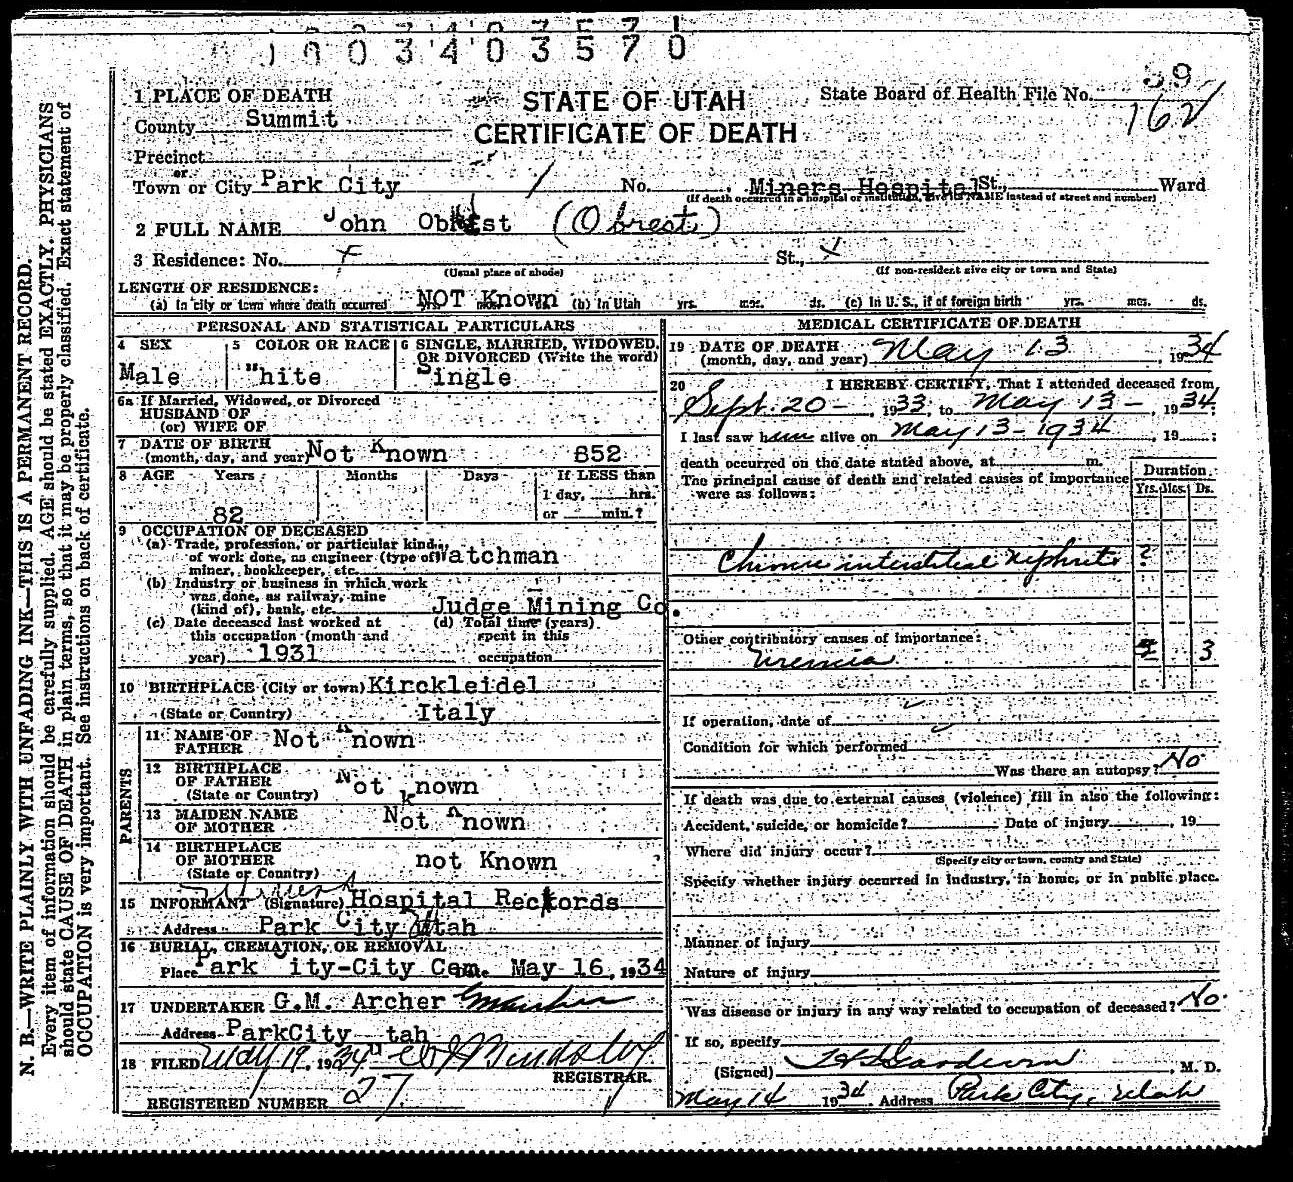 1003403570
39
162
STATE OF UTAH
CERTIFICATE OF DEATH
State Board of Health File No.
1 PLACE OF DEATH
County Summit
Precinct
or
Town or City Park City / No. Miners Hospital St., Ward
(If death occurred in a hospital or institution, give its NAME instead of street and number)
2 FULL NAME John Ob st (Obrest)
3 Residence: No. St., x
(Usual place of abode) (If non-resident give city or town and State)
LENGTH OF RESIDENCE:
(a) In city or town where death occurred NOT Known yrs. mos. ds. (b) In Utah yrs. mos. ds. (c) In U. S., if of foreign birth yrs. mos. ds.
PERSONAL AND STATISTICAL PARTICULARS
4 SEX Male
5 COLOR OR RACE "hite
6 SINGLE, MARRIED, WIDOWED, OR DIVORCED (Write the word) Single
6a If Married, Widowed, or Divorced
HUSBAND OF
(or) WIFE OF
7 DATE OF BIRTH
(month, day, and year) Not Known 852
8 AGE Years Months Days If LESS than
1 day, hrs.
or min.?
82
9 OCCUPATION OF DECEASED
(a) Trade, profession, or particular kind
of work done, as engineer (type of) Watchman
miner, bookkeeper, etc.
(b) Industry or business in which work
was done, as railway, mine
(kind of), bank, etc. Judge Mining Co.
(c) Date deceased last worked at
this occupation (month and
year) 1931
(d) Total time (years)
spent in this
occupation
10 BIRTHPLACE (City or town) Kirckleidel
(State or Country) Italy
PARENTS
11 NAME OF
FATHER Not Known
12 BIRTHPLACE
OF FATHER Not known
(State or Country)
13 MAIDEN NAME
OF MOTHER Not Known
14 BIRTHPLACE
OF MOTHER not Known
(State or Country)
15 INFORMANT (Signature) Hospital Records
Address Park City Utah
16 BURIAL, CREMATION, OR REMOVAL
Place Park City-City Cem. Date May 16, 1934
17 UNDERTAKER G.M. Archer
Address ParkCity tah
18 FILED May 19, 1934
REGISTRAR.
REGISTERED NUMBER 27
MEDICAL CERTIFICATE OF DEATH
19 DATE OF DEATH
(month, day, and year) May 13, 1934
20 I HEREBY CERTIFY, That I attended deceased from
Sept. 20 - , 1933, to May 13 - , 1934;
I last saw him alive on May 13 - 1934, 19 ;
death occurred on the date stated above, at m.
The principal cause of death and related causes of importance
were as follows:
Duration
Yrs. Mos. Ds.
Chronic interstitial Nephritis ?
Other contributory causes of importance:
Uremia 3
If operation, date of
Condition for which performed
Was there an autopsy? No
If death was due to external causes (violence) fill in also the following:
Accident, suicide, or homicide? Date of injury , 19
Where did injury occur?
(Specify city or town, county and State)
Specify whether injury occurred in industry, in home, or in public place.
Manner of injury
Nature of injury
Was disease or injury in any way related to occupation of deceased? No.
If so, specify
(Signed) , M. D.
May 14 1934 Address Park City, Utah
N. B.—WRITE PLAINLY WITH UNFADING INK—THIS IS A PERMANENT RECORD.
Every item of information should be carefully supplied. AGE should be stated EXACTLY. PHYSICIANS
should state CAUSE OF DEATH in plain terms, so that it may be properly classified. Exact statement of
OCCUPATION is very important. See instructions on back of certificate.